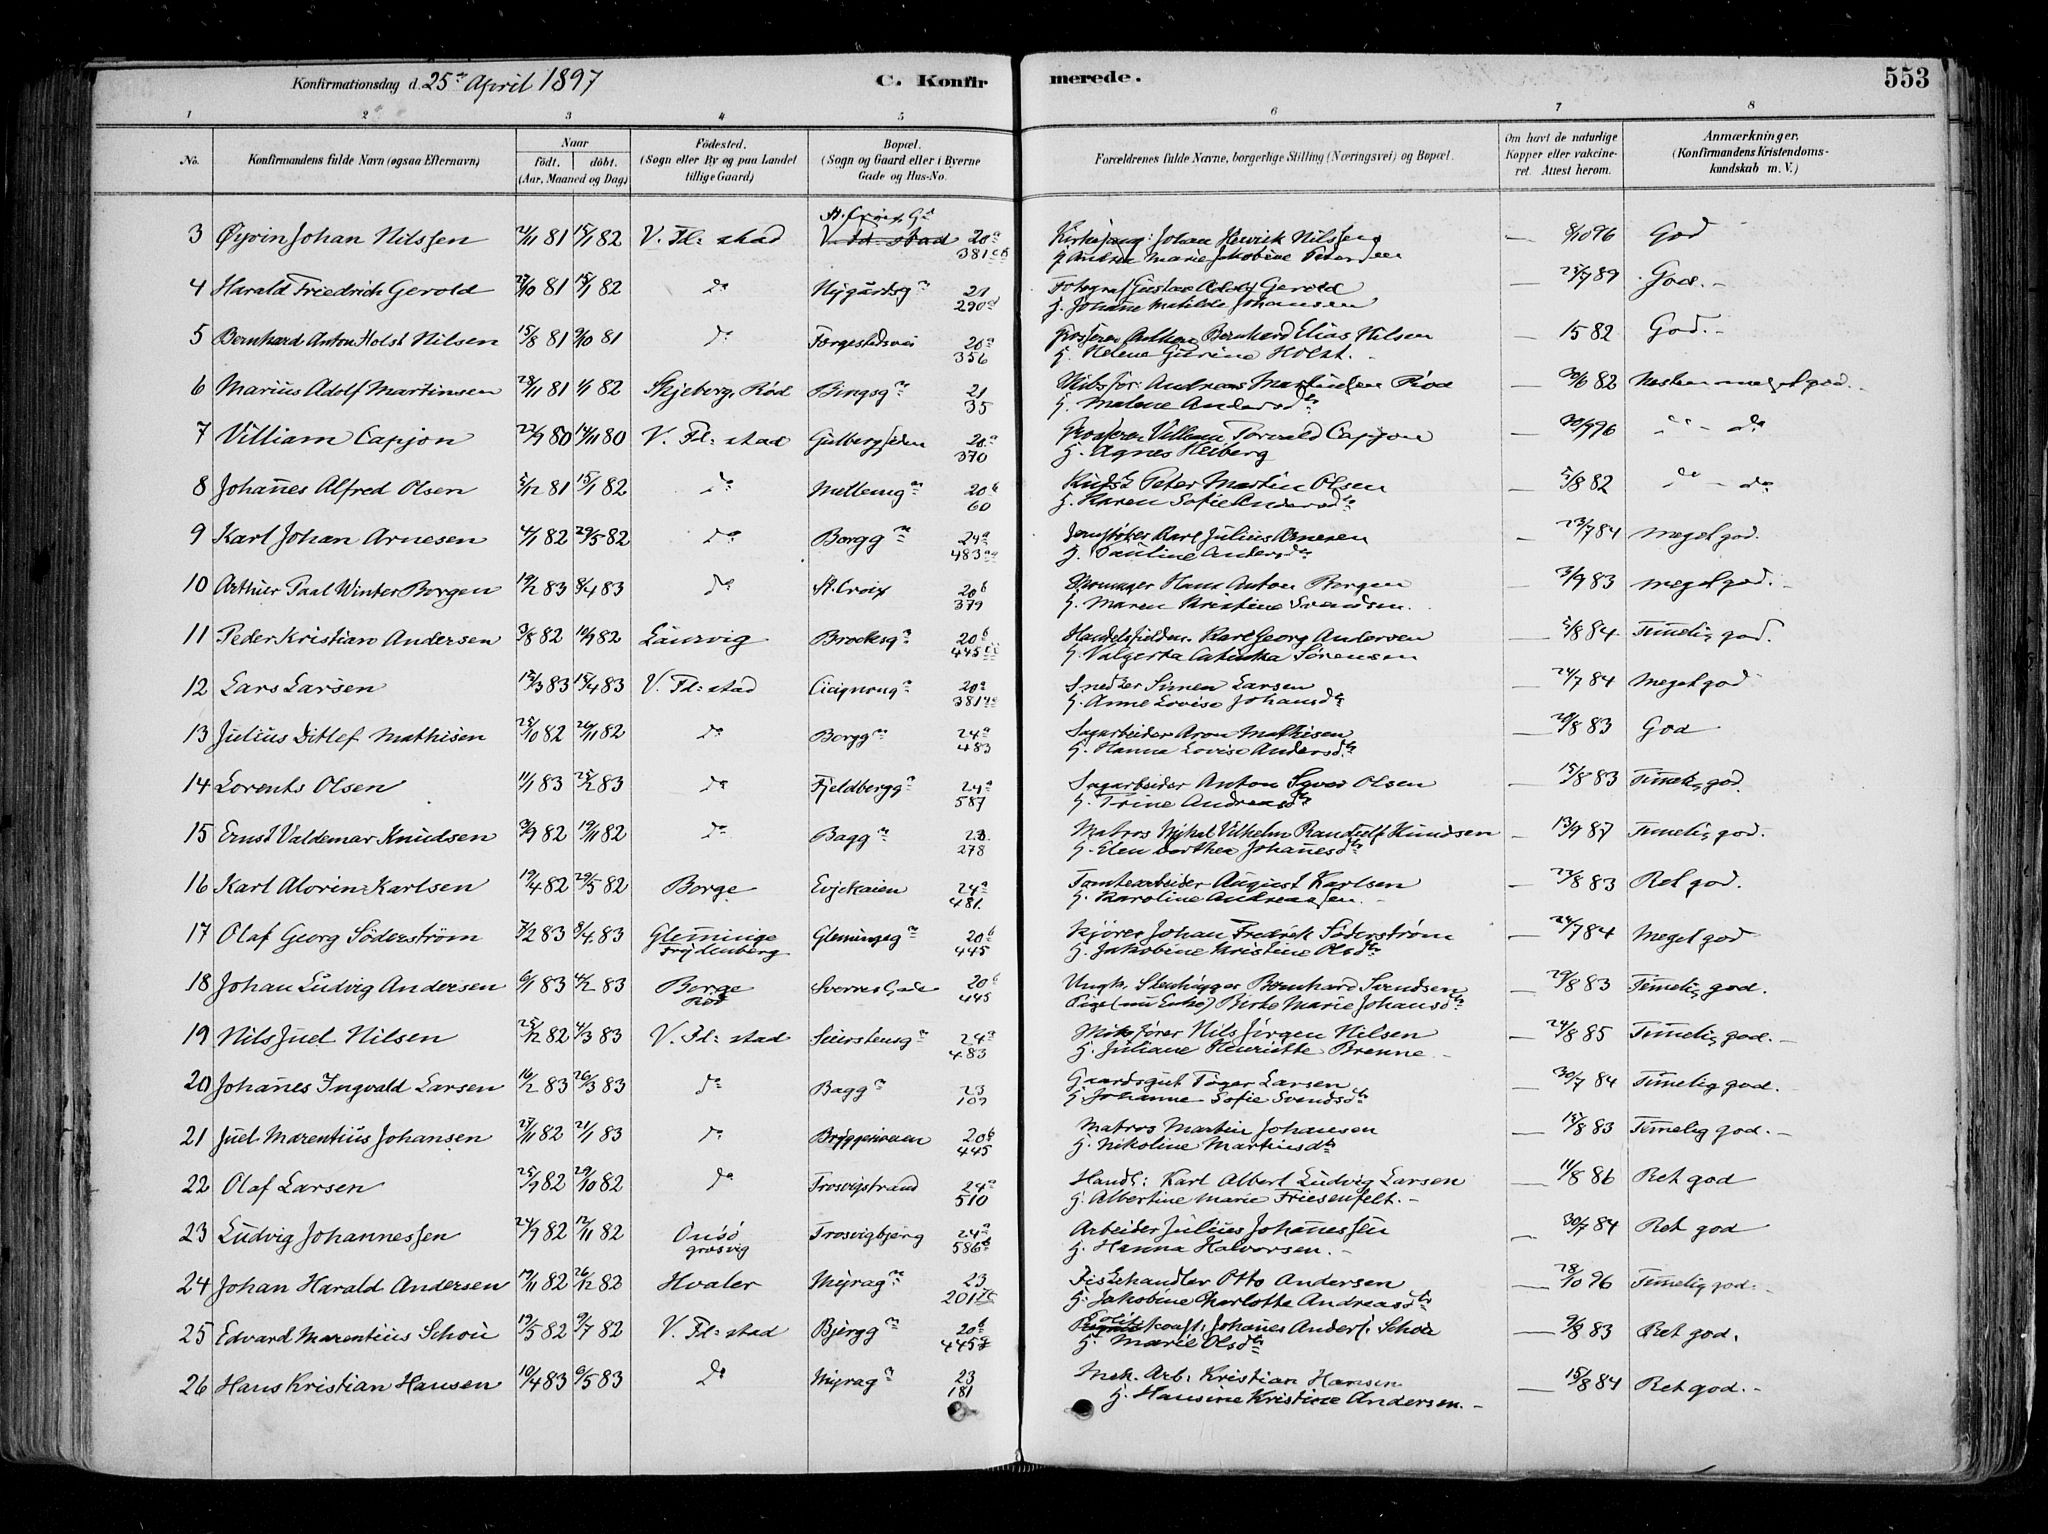 Konfirmationsdag d. 25de April 1897 C. Konfirmerede. 553
1 2 3 4 5 6 7 8
No. Konfirmandens fulde Navn (ogsaa Efternavn) Naar født. døbt. (Aar, Maaned og Dag) Fødested. (Sogn eller By og paa Landet tillige Gaard) Bopæl. (Sogn og Gaard eller i Byerne Gade og Hus-No. Forældrenes fulde Navne, borgerlige Stilling (Næringsvei) og Bopæl. Om havt de naturlige Kopper eller vakcineret. Attest herom. Anmærkninger. (Konfirmandens Kristendomskundskab m. V.)
3 Øyvin Johan Nilssen 21/11 81 15/1 82 V. Fl: stad St. Croix Gd 20a 381 Johan Henrik Nilssen — 8/10 96 God
g. Andrea Marie Jakobine Petersen
4 Harald Friedrich Gerold 27/10 81 15/1 82 do Nygårdsg 21 290d Fotograf Gustav Adolf Gerold — 25/7 89 God. -
H. Johane Matilde Johansen
5 Bernhard Anton Holst Nilsen 15/8 81 9/10 81 do Færgestedsvei 20a 356 Grosserer Anthon Bernhard Elias Nilsen — 15 82 God. -
H. Helene Holst. -
6 Marius Adolf Martinsen 28/11 81 1/1 82 Skjeberg, Rød Bingsg 21 35 Andreas Martinsen Rød — 30/6 82 Nesten meget god. -
H. Malene Andersdtr
7 Villiam Capjon 22/9 80 14/11 80 V. Fl: stad Gulbergsiden 20a 370 Grosserer Villem Torvald Capjon — 30/9 96 " - do
H. Agnes Heiberg
8 Johanes Alfred Olsen 5/12 81 15/1 82 do Mellemg 20b 60 Kudsk Peter Martin Olsen — 5/8 82 do - do
H. Karen Sofie Andersdtr
9 Karl Johan Arnesen 4/1 82 29/5 82 do Borgg 24a 483 Karl Julius Arnesen — 23/7 84 Meget god.
H. Pauline Andersdtr
10 Arthur Paal Winter Borgen 19/2 83 8/4 83 do St. Croix 20b 379 Skomager Hans Anton Borgen — 3/9 83 Meget god.
H. Maren Kristine Svendsen.
11 Peder Kristian Andersen 3/8 82 10/9 82 Laurvig Brochsg 20b 445 Karl Georg Andersen — 5/8 84 Temelig god.
H. Valgerta Catinka Sørensen
12 Lars Larsen 12/3 83 15/4 83 V. Fl: stad Cicignong 20a 381 Snedker Simen Larsen — 24/7 84 Meget god
H. Anne Lovise Johansdtr
13 Julius Ditlef Mathisen 25/10 82 26/11 82 do Borgg 24a 483 Sagarbeider Aron Mathisen — 20/8 83 God
H. Hanna Lovise Andersdtr
14 Lorents Olsen 11/1 83 25/2 83 do Fjeldbergg 24a 587 Sagarbeider Anton Syver Olsen — 15/8 83 Temelig god.
H. Trine Andreasdtr
15 Ernst Valdemar Knudsen 3/9 82 19/11 82 do Bagg 23 278 Matros Mikal Vilhelm Randulf Knudsen — 13/9 87 Temelig god.
H. Elen Dorthea Johanesdtr
16 Karl Alvrin Karlsen 19/4 82 29/5 82 Borge Evjekaien 24a 481. Tomtearbeider August Karlsen — 23/8 83 Ret god.
H. Karoline Andreassen. -
17 Olaf Georg Söderström 7/2 83 8/4 83 Gleminge Frydenberg Glemingeg 20b 445 Kjører Johan Fredrik Söderström — 24/7 84 Meget god
H. Jakobine Kristine Olsdtr
18 Johan Ludvig Andersen 6/1 83 4/2 83 Borge Rød Sverres Gade 20b 445 Ungk. Stenhugger Bernhard Svendsen — 29/8 83 Temelig god.
Pige (nu Enke) Birte Marie Johansdtr
19 Nils Juel Nilsen 25/12 82 4/3 83 V. Fl: stad Seierstensg 24a 483 Nils Jörgen Nilsen — 24/8 85 Temelig god. -
H. Juliane Henriette Brenne -
20 Johanes Ingvald Larsen 16/2 83 26/3 83 do Bagg 23 109 Gaardsgut Tøger Larsen — 30/7 84 Temelig god.
H. Johanne Sofie Svendsdtr
21 Juel Marentius Johansen 27/11 82 21/1 83 do Bryggeriveien 20b 445 Matros Martin Johansen — 15/8 83 Temelig god. -
H. Nikoline Martinsdtr
22 Olaf Larsen 25/9 82 29/10 82 do Trosvigstrand 24a 510 Handl: Karl Albert Ludvig Larsen — 11/8 86 Ret god
H. Albertine Marie Friesenfelt. -
23 Ludvig Johannessen 24/9 82 12/11 82 Onsö grosvig Trosvigbjerg 24a 586b Arbeider Julius Johanessen — 30/7 84 Ret god
H. Hanna Halvorsen. -
24 Johan Harald Andersen 17/11 82 26/12 82 Hvaler Myrag 23 201 Fiskehandler Otto Andersen — 28/10 96 Temelig god.
H. Jakobine Charlotte Andreasdtr
25 Edvard Marentius Schou 19/5 82 9/7 82 V. Fl: stad Bjergg 20b 445 Politikonst: Johanes Anders: Schou — 9/8 83 Ret god.
H. Marie Olsdtr
26 Hans Kristian Hansen 10/4 83 6/5 83 do Myrag 23 181 Mek. Arb. Kristian Hansen — 15/8 84 Ret god. -
H. Hansine Kristine Andersen. -